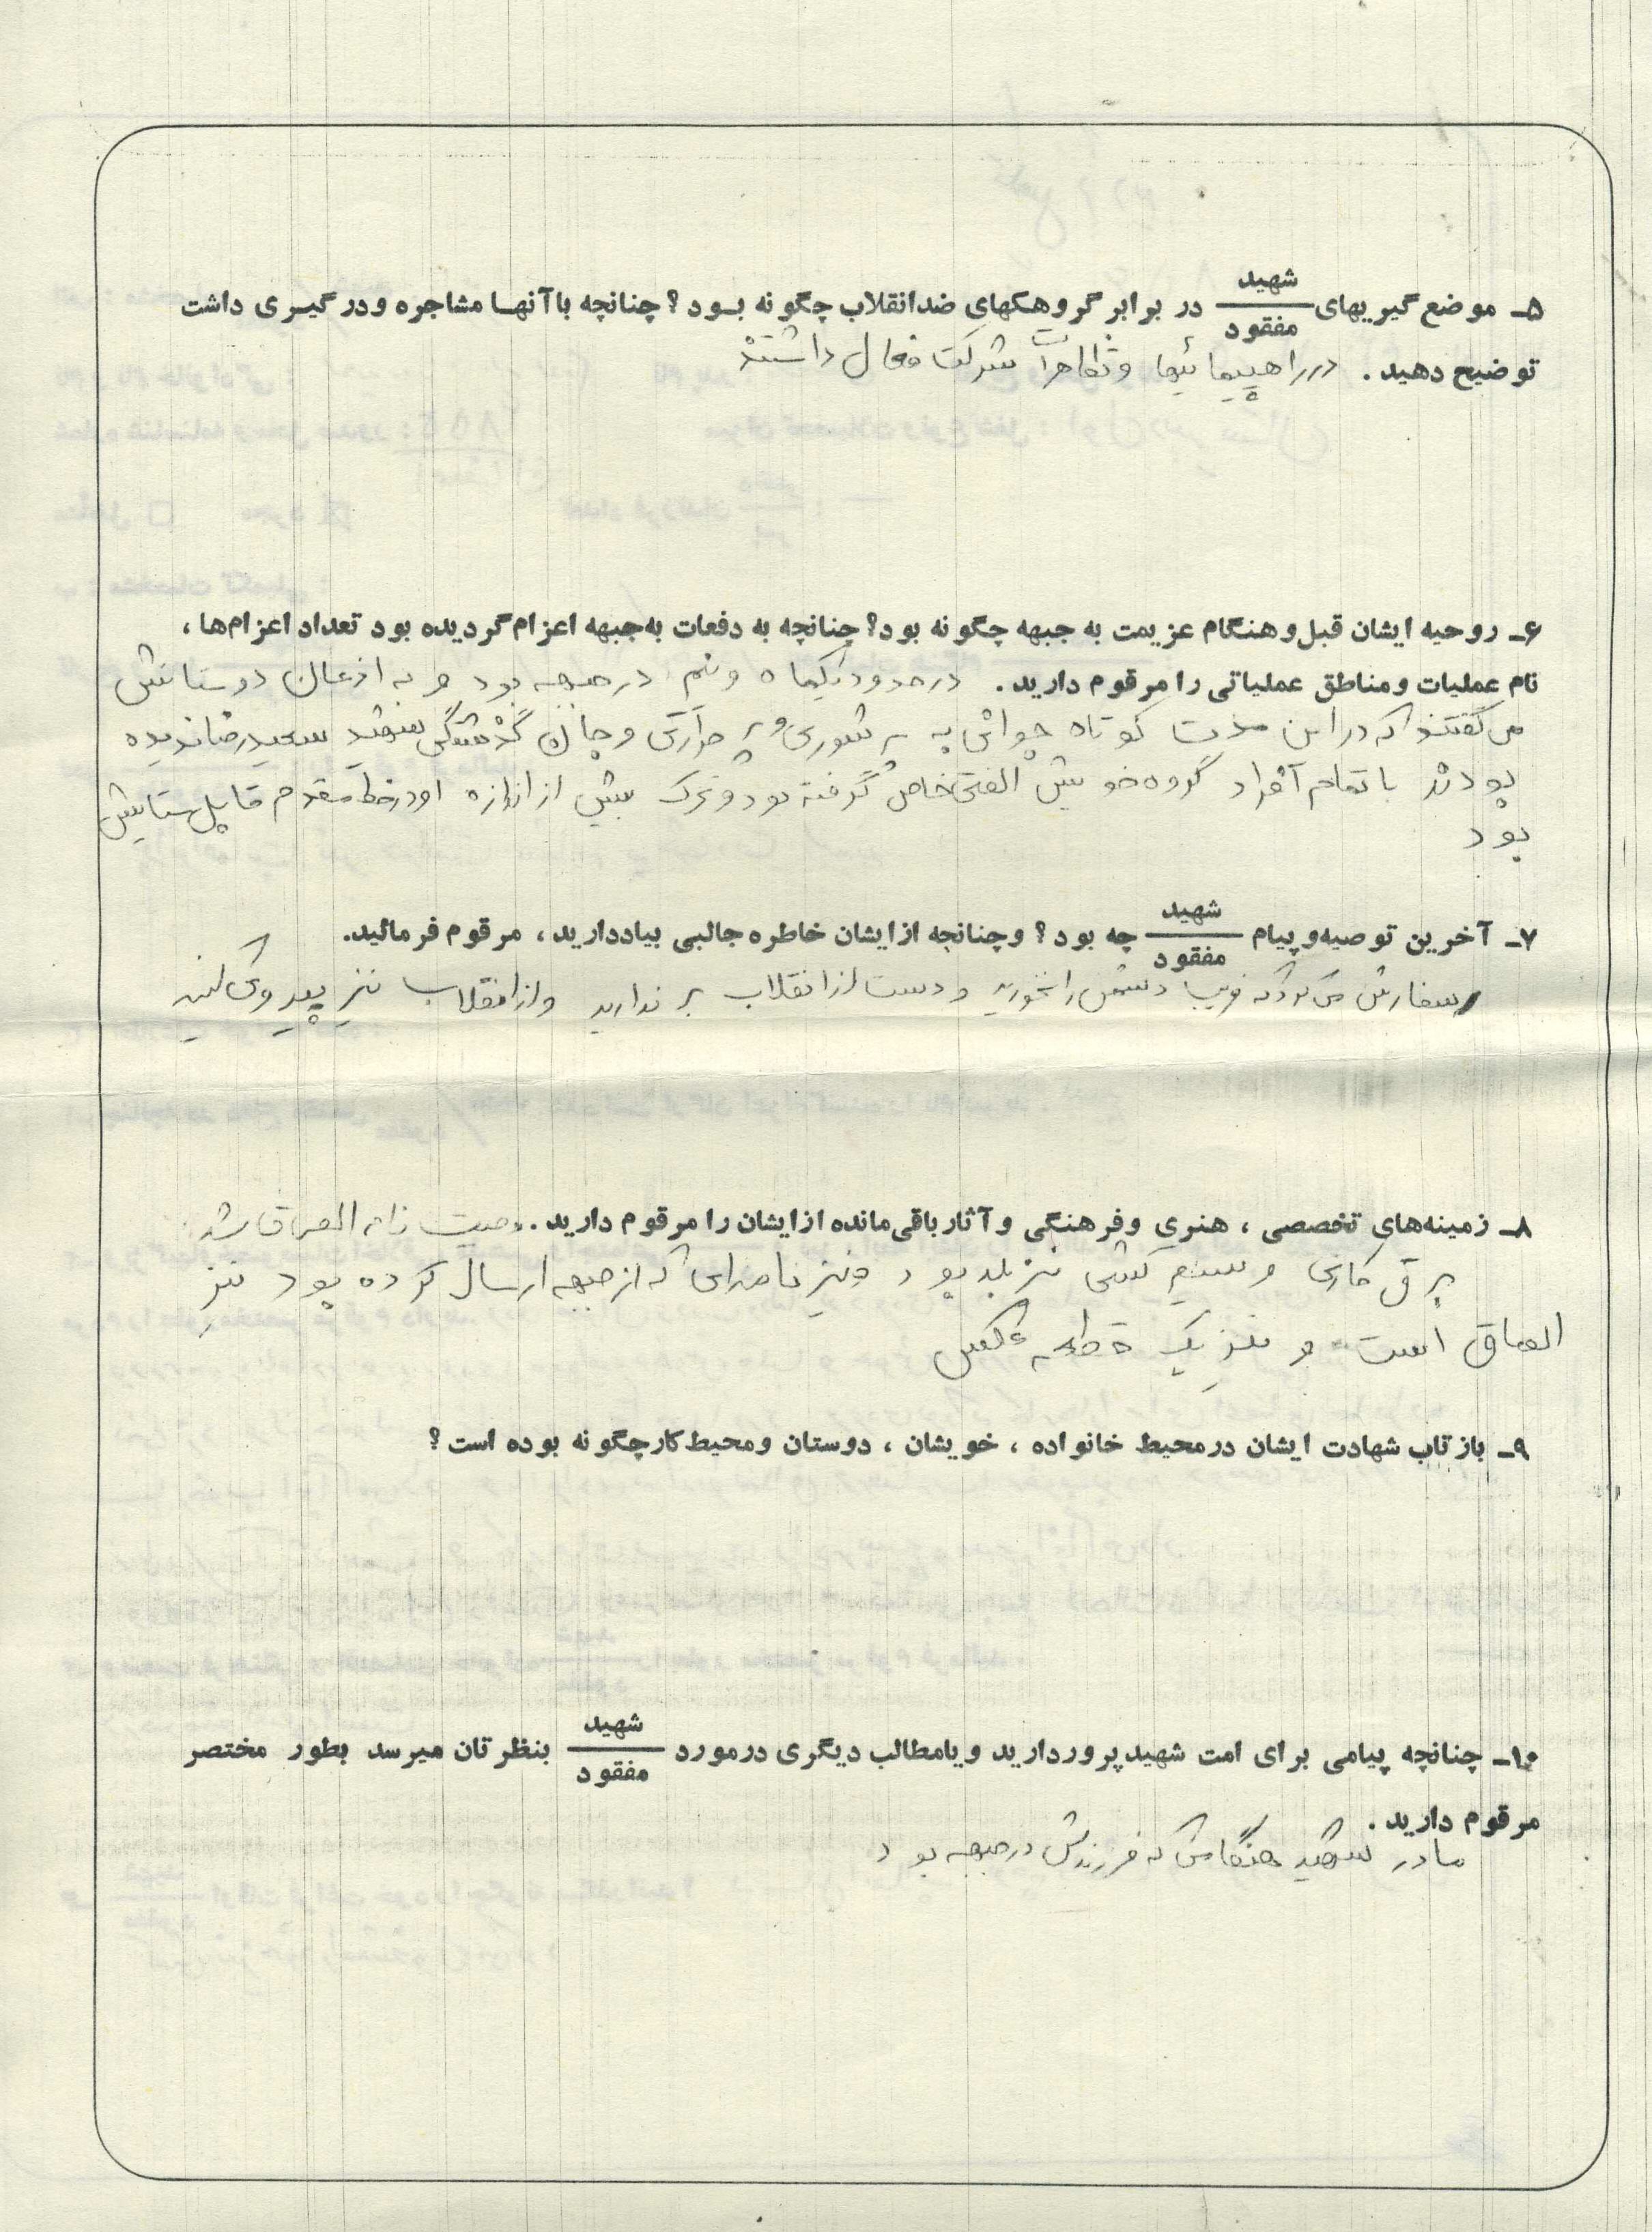 ۵ـ موضع‌گیریهای شهید/مفقود در برابر گروهکهای ضدانقلاب چگونه بود؟ چنانچه با آنها مشاجره و درگیری داشت
توضیح دهید. در راهپیمائیها و تظاهرات شرکت فعال داشتند
۶ـ روحیه ایشان قبل و هنگام عزیمت به جبهه چگونه بود؟ چنانچه به دفعات به‌جبهه اعزام گردیده بود تعداد اعزام‌ها،
نام عملیات و مناطق عملیاتی را مرقوم دارید. در حدود یکماه و نیم در جبهه بود و به اذعان دوستانش
می گفتند که در این مدت کوتاه جوانی به پر شوری و پر حرارتی و جان گذشتگی شهید سعیدرضا ندیده
بودند با تمام افراد گروه خویش الفتی خاص گرفته بود و تحرک بیش از اندازه او در خط مقدم قابل ستایش
بود
۷ـ آخرین توصیه و پیام شهید/مفقود چه بود؟ و چنانچه از ایشان خاطره جالبی بیاد دارید، مرقوم فرمائید.
سفارش می کرد که فریب دشمن را نخورید و دست از انقلاب بر ندارید و از انقلاب نیز پیروی کنید
۸ـ زمینه‌های تخصصی، هنری و فرهنگی و آثار باقی‌مانده از ایشان را مرقوم دارید. وصیت نامه الصاق شد
برق کاری و سیم کشی نیز بلد بود و نیز نامه‌ای که از جبهه ارسال کرده بود نیز
الصاق است و نیز یک قطعه عکس
۹ـ بازتاب شهادت ایشان در محیط خانواده، خویشان، دوستان و محیط کار چگونه بوده است؟
۱۰ـ چنانچه پیامی برای امت شهیدپرور دارید و یا مطالب دیگری در مورد شهید/مفقود بنظرتان میرسد بطور مختصر
مرقوم دارید.
مادر شهید هنگامی که فرزندش در جبهه بود